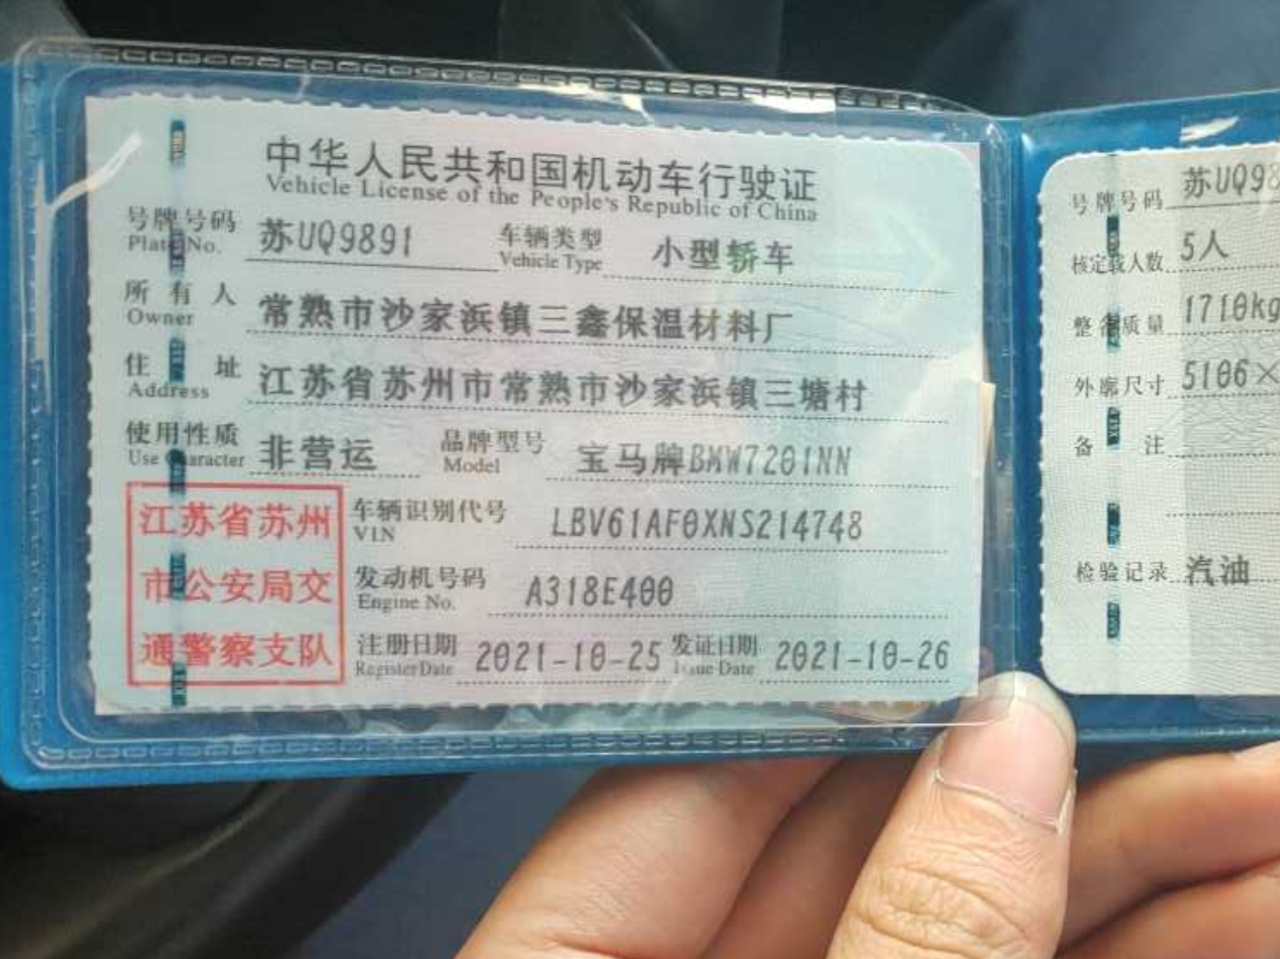 中华人民共和国机动车行驶证
Vehicle License of the People's Republic of China
号牌号码 苏UQ9891 车辆类型 小型轿车
Plate No. Vehicle Type
所有人 常熟市沙家浜镇三鑫保温材料厂
Owner
住址 江苏省苏州市常熟市沙家浜镇三塘村
Address
使用性质 非营运 品牌型号 宝马牌BMW7201NN
Use Character Model
江苏省苏州
市公安局交
通警察支队
车辆识别代号 LBV61AF0XNS214748
VIN
发动机号码 A318E400
Engine No.
注册日期 2021-10-25 发证日期 2021-10-26
Register Date Issue Date
号牌号码 苏UQ98
核定载人数 5人
整备质量 1710kg
外廓尺寸 5106×
备注
检验记录 汽油